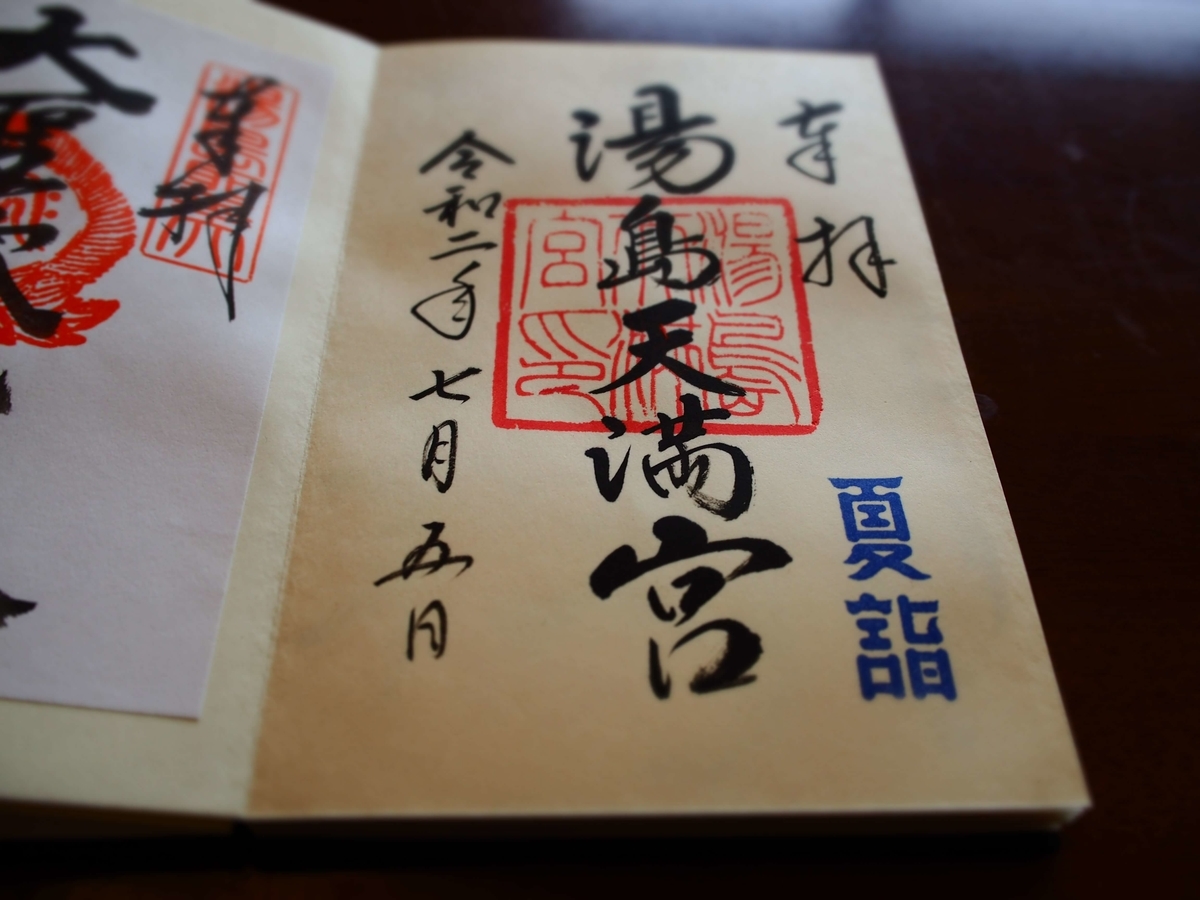 奉拝
湯島天満宮
湯島天満宮印
夏詣
令和二年七月五日
奉拝